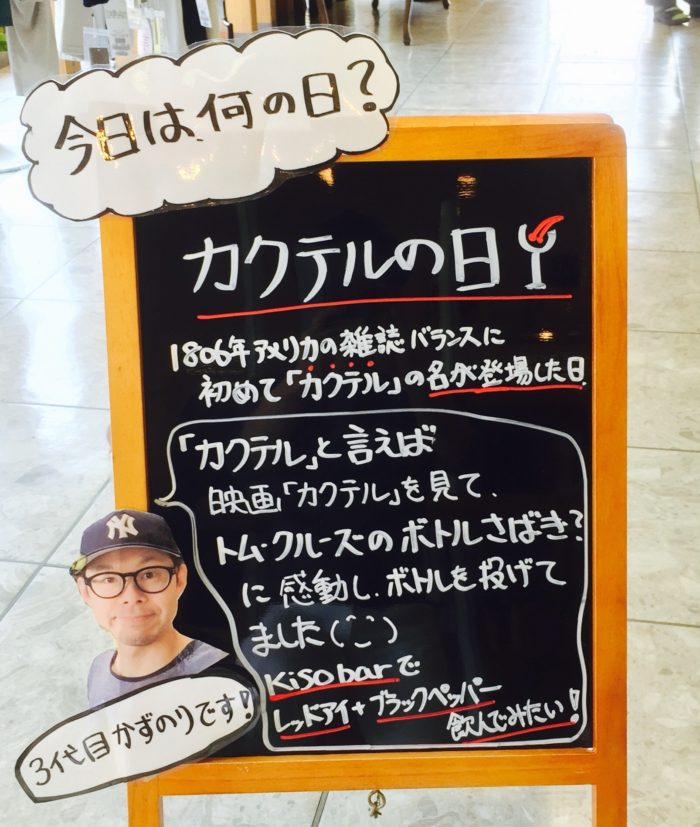 今日は、何の日?
カクテルの日
1806年アメリカの雑誌バランスに
初めて「カクテル」の名が登場した日
「カクテル」と言えば
映画「カクテル」を見て、
トム・クルーズのボトルさばき?
に感動し、ボトルを投げて
ました(¨)
Kiso barで
レッドアイ+ブラックペッパー
飲んでみたい!
NY
3代目かずのりです!